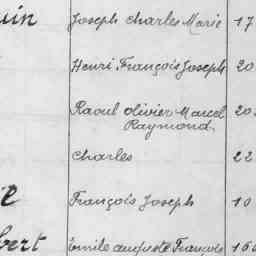 uin Joseph Charles Marie 17
Henri François Joseph 20
Raoul Olivier Marcel 20
Raymond,
Charles 22
e François Joseph 10
bert Emile auguste François 16